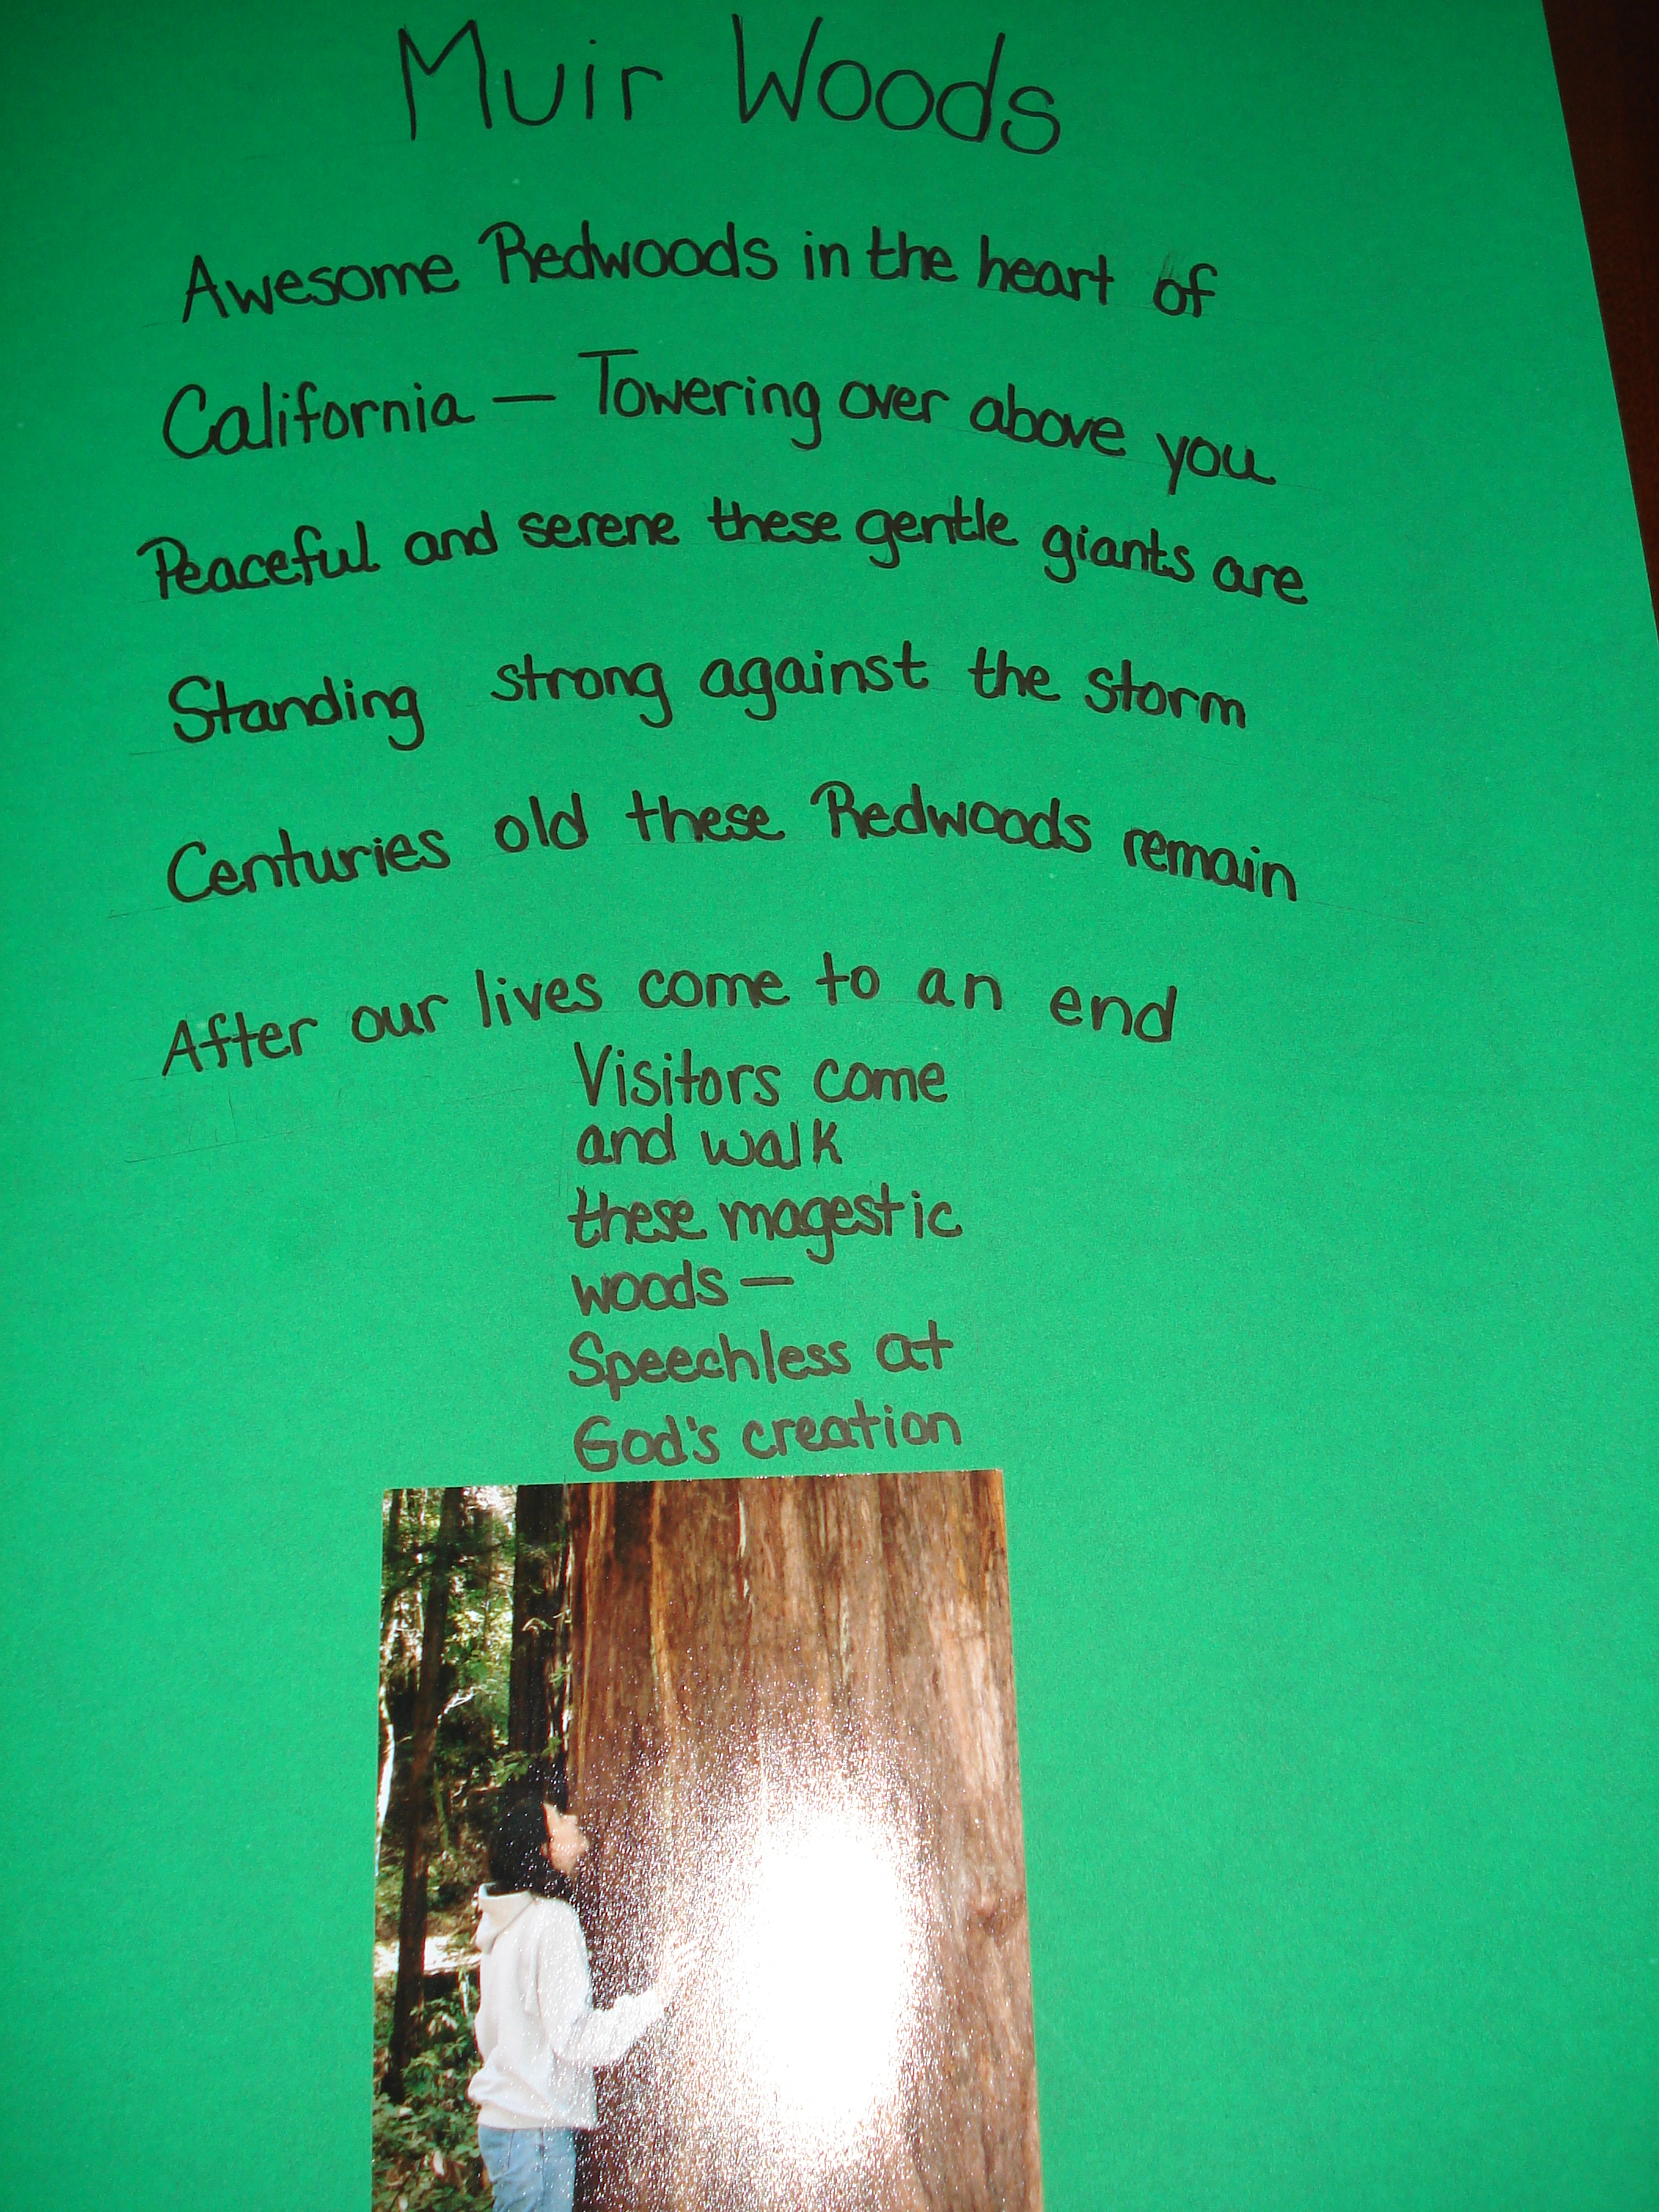 Muir Woods
Awesome Redwoods in the heart of
California — Towering over above you
Peaceful and serene these gentle giants are
Standing strong against the storm
Centuries old these Redwoods remain
After our lives come to an end
Visitors come
and walk
these magestic
woods —
Speechless at
God's creation